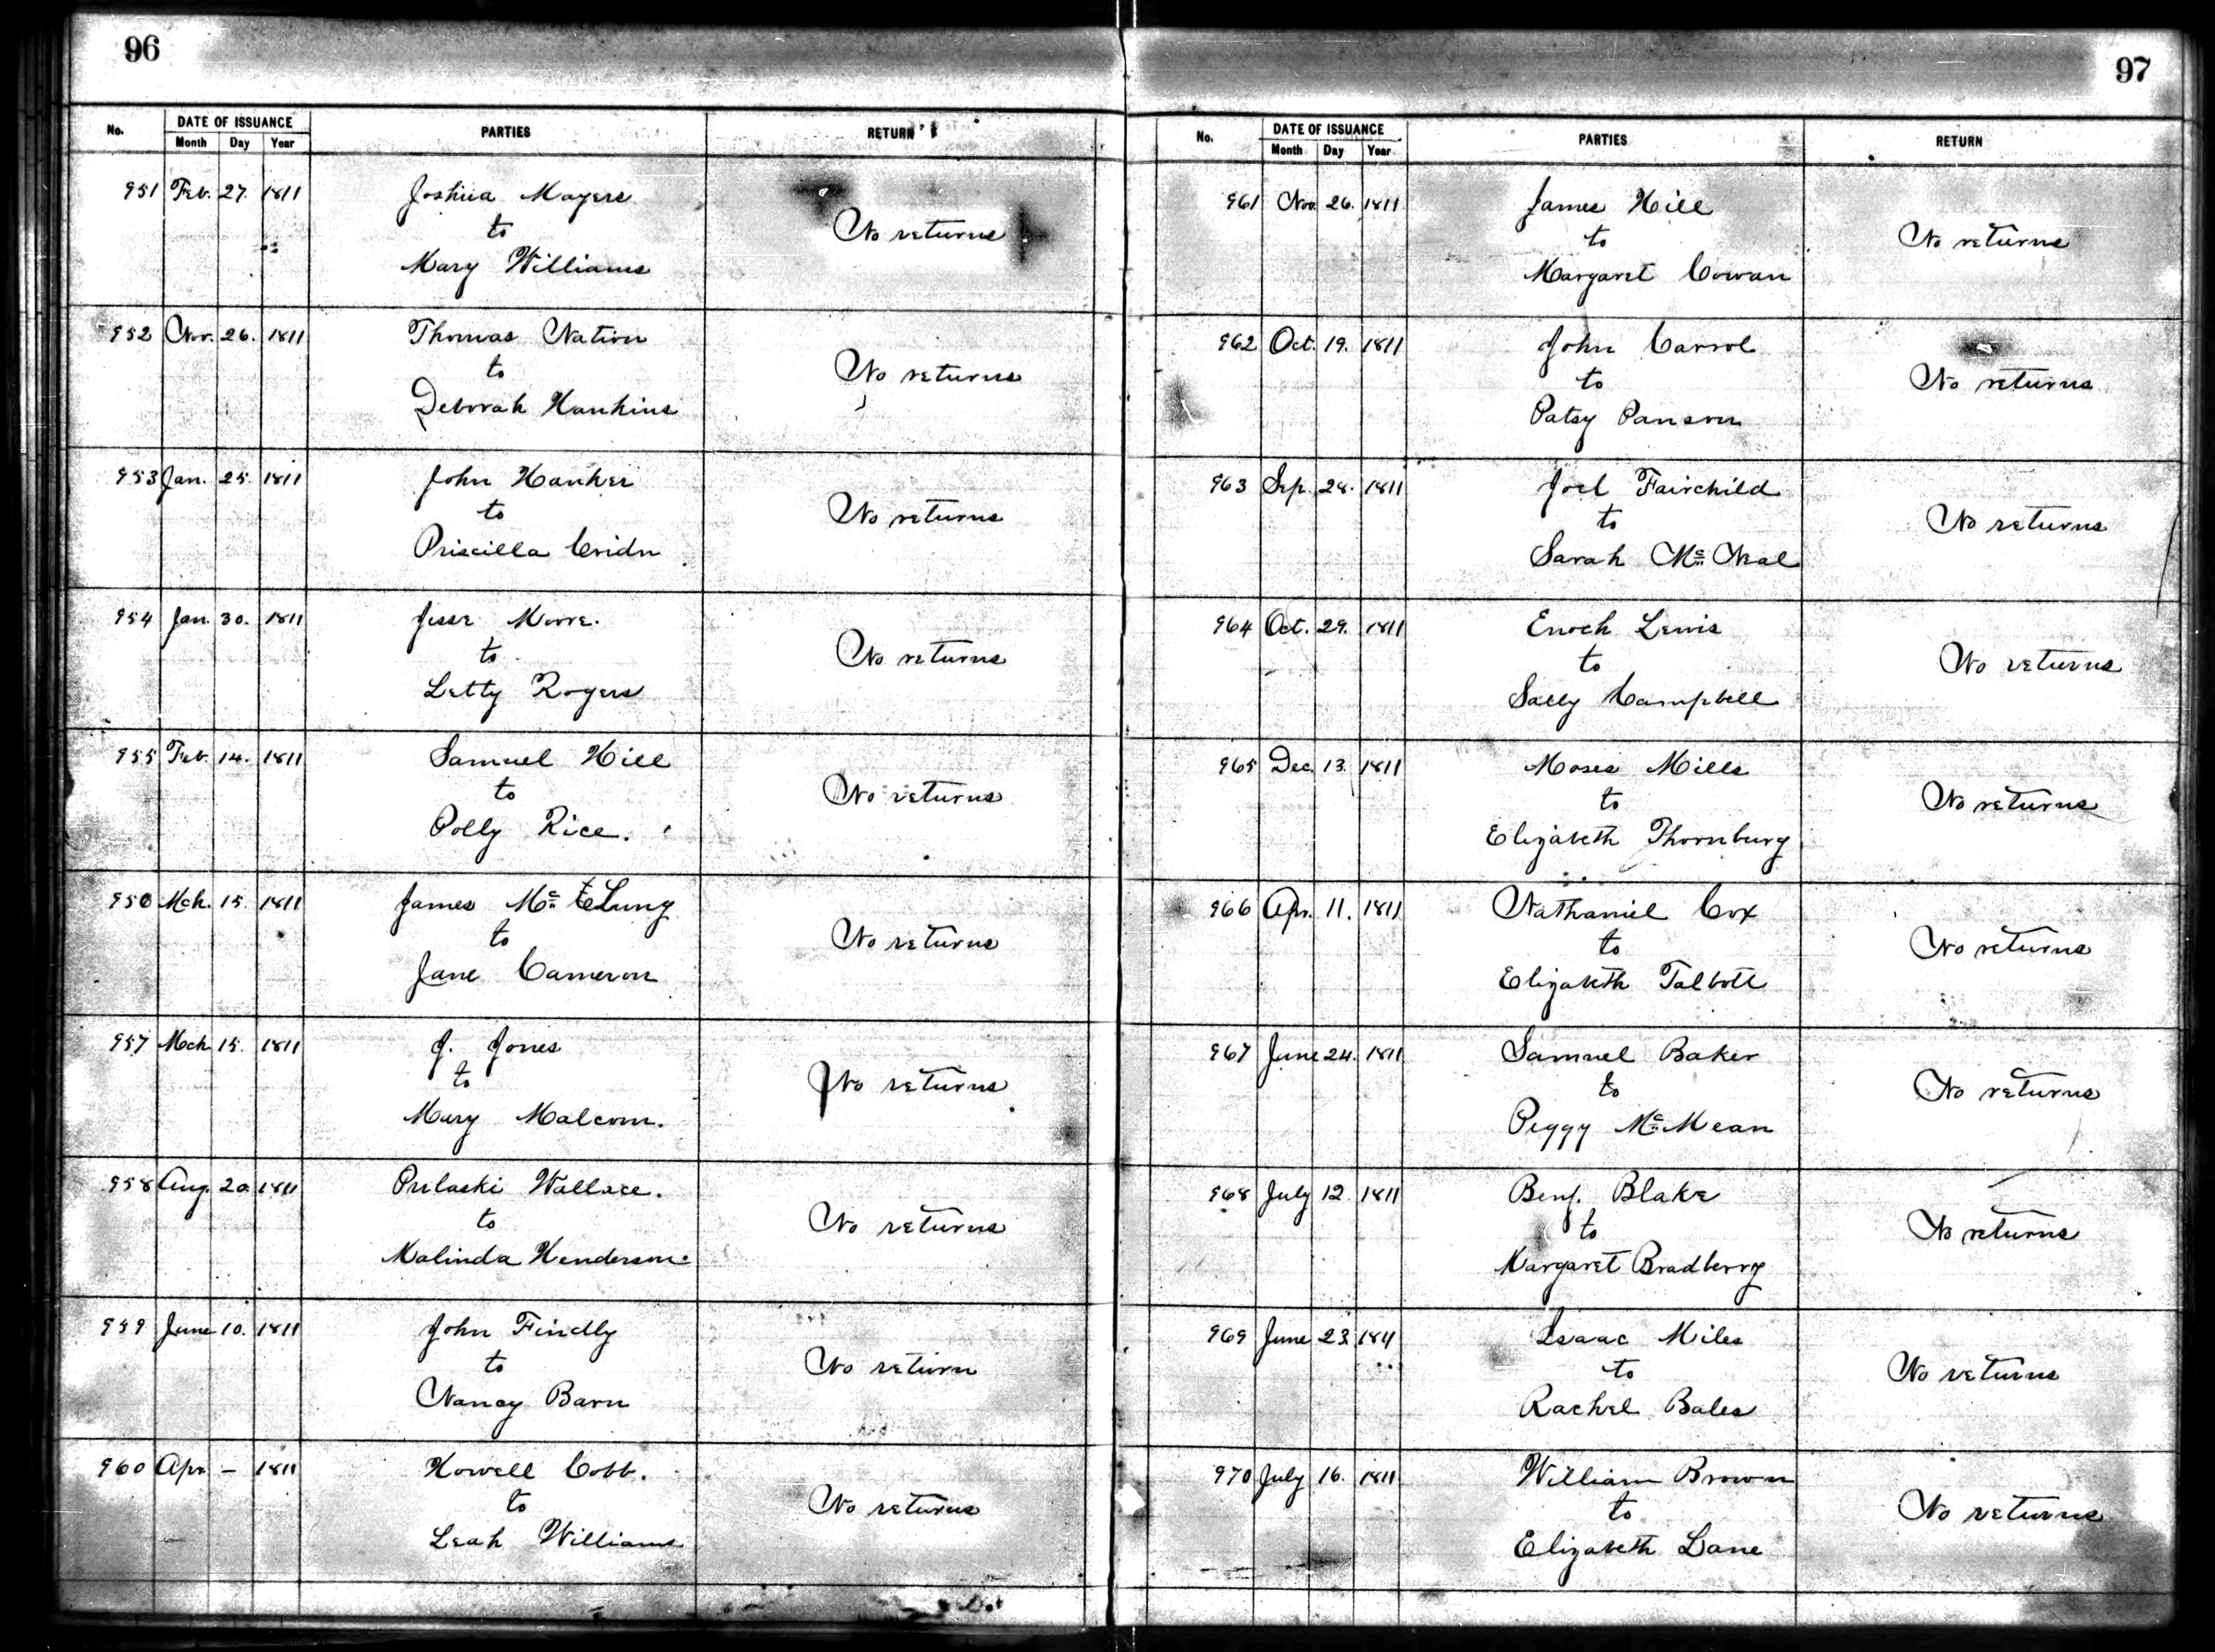 96
No. DATE OF ISSUANCE PARTIES RETURN
Month Day Year
951 Feb. 27. 1811 Joshua Mayers
to
No returns
Mary Williams
952 Nov. 26. 1811 Thomas Nation
to
No returns
Deborah Hankins
953 Jan. 25. 1811 John Hanker
to
No returns
Priscilla Cridr
954 Jan. 30. 1811 Jesse Moore.
to
No returns
Letty Rogers
955 Feb. 14. 1811 Samuel Hill
to
No returns
Polly Rice.
956 Mch. 15. 1811 James Mc. Clung
to
No returns
Jane Cameron
957 Mch 15. 1811 J. Jones
to
No returns
Mary Malcom.
958 Aug. 20. 1811 Pulaski Wallace.
to
No returns
Malinda Henderson.
959 June 10. 1811 John Findly
to
No return
Nancy Barn
960 Apr. – 1811 Howell Cobb.
to
No returns
Leah Williams
97
No. DATE OF ISSUANCE PARTIES RETURN
Month Day Year
961 Nov. 26. 1811 James Hill
to
No returns
Margaret Cowan
962 Oct. 19. 1811 John Carrol
to
No returns
Patsy Panson
963 Sep. 28. 1811 Joel Fairchild
to
No returns
Sarah Mc Neal
964 Oct. 29. 1811 Enoch Lewis
to
No returns
Sally Campbell
965 Dec. 13. 1811 Moses Mills
to
No returns
Elizabeth Thornburg
966 Apr. 11. 1811 Nathaniel Cox
to
No returns
Elizabeth Talbott
967 June 24. 1811 Samuel Baker
to
No returns
Peggy McMean
968 July 12. 1811 Benj. Blake
to
No returns
Margaret Bradberry
969 June 23 1811 Isaac Miles
to
No returns
Rachel Bales
970 July 16. 1811 William Brown
to
No returns
Elizabeth Lane